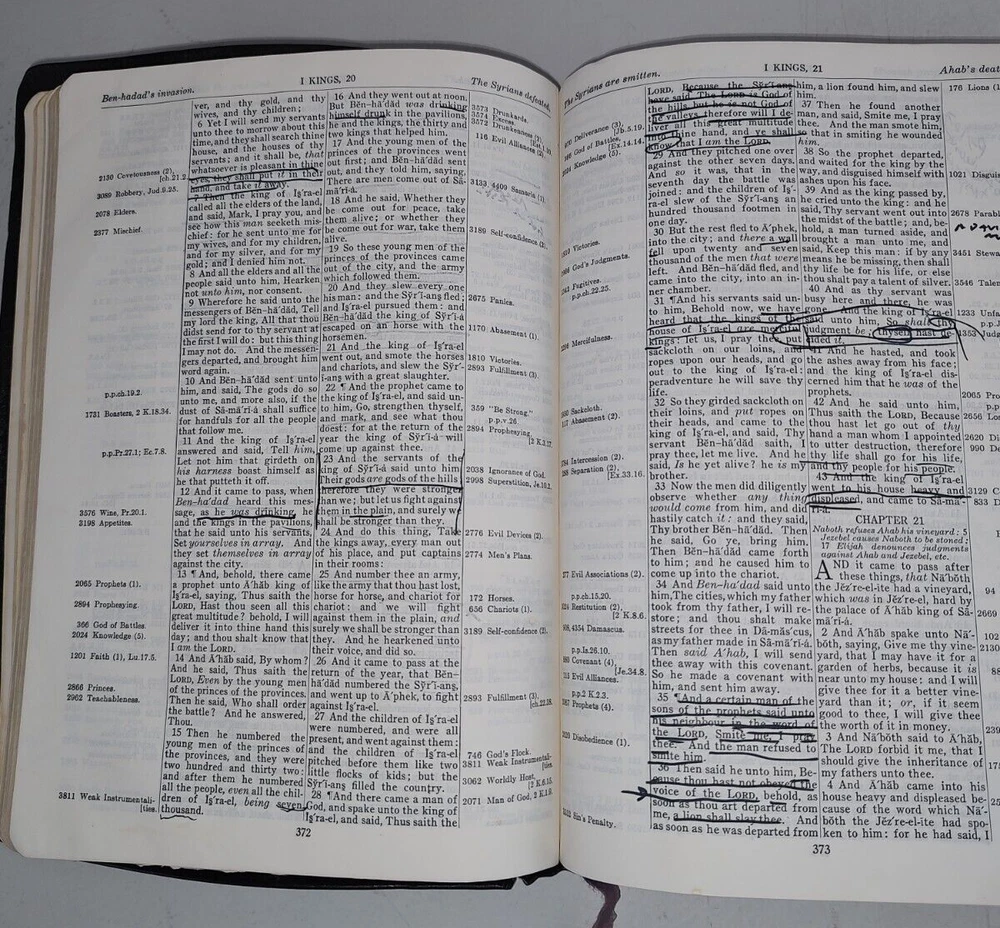 Ben-hadad's invasion.
I KINGS, 20
The Syrians defeated.
2130 Covetousness (2),
ch.21.2
3089 Robbery, Jud.9.25.
2078 Elders.
2377 Mischief.
p.p.ch.19.2.
1731 Boasters, 2 K.18.34.
p.p.Pr.27.1; Ec.7.8.
3576 Wine, Pr.20.1.
3198 Appetites.
2065 Prophets (1).
2894 Prophesying.
366 God of Battles
2024 Knowledge (5).
1201 Faith (1), Lu.17.5.
2866 Princes.
2902 Teachableness.
3811 Weak Instrumentali-
[ties.
ver, and thy gold, and thy
wives, and thy children;
6 Yet I will send my servants
unto thee to morrow about this
time, and they shall search thine
house, and the houses of thy
servants; and it shall be, that
whatsoever is pleasant in thine
eyes, they shall put it in their
hand, and take it away.
7 Then the king of Iş'ra-el
called all the elders of the land,
and said, Mark, I pray you, and
see how this man seeketh mis-
chief: for he sent unto me for
my wives, and for my children,
and for my silver, and for my
gold; and I denied him not.
8 And all the elders and all the
people said unto him, Hearken
not unto him, nor consent.
9 Wherefore he said unto the
messengers of Bĕn–hā'dăd, Tell
my lord the king, All that thou
didst send for to thy servant at
the first I will do: but this thing
I may not do. And the messen-
gers departed, and brought him
word again.
10 And Bĕn–hā'dăd sent unto
him, and said, The gods do so
unto me, and more also, if the
dust of Sā-mā'rĭ-ȧ shall suffice
for handfuls for all the people
that follow me.
11 And the king of Iş'ra-el
answered and said, Tell him,
Let not him that girdeth on
his harness boast himself as
he that putteth it off.
12 And it came to pass, when
Ben-ha'dad heard this mes-
sage, as he was drinking, he
and the kings in the pavilions,
that he said unto his servants,
Set yourselves in array. And
they set themselves in array
against the city.
13 ¶ And, behold, there came
a prophet unto Ā'hăb king of
Iş'ra-el, saying, Thus saith the
LORD, Hast thou seen all this
great multitude? behold, I will
deliver it into thine hand this
day; and thou shalt know that
I am the LORD.
14 And Ā'hăb said, By whom?
And he said, Thus saith the
LORD, Even by the young men
of the princes of the provinces.
Then he said, Who shall order
the battle? And he answered,
Thou.
15 Then he numbered the
young men of the princes of
the provinces, and they were
two hundred and thirty two:
and after them he numbered
all the people, even all the chil-
dren of Iş'ra-el, being seven
thousand.
16 And they went out at noon.
But Bĕn–hā'dăd was drinking
himself drunk in the pavilions,
he and the kings, the thirty and
two kings that helped him.
17 And the young men of the
princes of the provinces went
out first; and Bĕn–hā'dăd sent
out, and they told him, saying,
There are men come out of Sā-
mā'rĭ-ȧ.
18 And he said, Whether they
be come out for peace, take
them alive; or whether they
be come out for war, take them
alive.
19 So these young men of the
princes of the provinces came
out of the city, and the army
which followed them.
20 And they slew every one
his man: and the Sўr'ĭ-anş fled;
and Iş'ra-el pursued them: and
Bĕn–hā'dăd the king of Sўr'ĭ-ȧ
escaped on an horse with the
horsemen.
21 And the king of Iş'ra-el
went out, and smote the horses
and chariots, and slew the Sўr'-
ĭ-anş with a great slaughter.
22 ¶ And the prophet came to
the king of Iş'ra-el, and said un-
to him, Go, strengthen thyself,
and mark, and see what thou
doest: for at the return of the
year the king of Sўr'ĭ-ȧ will
come up against thee.
23 And the servants of the
king of Sўr'ĭ-ȧ said unto him,
Their gods are gods of the hills;
therefore they were stronger
than we; but let us fight against
them in the plain, and surely we
shall be stronger than they.
24 And do this thing, Take
the kings away, every man out
of his place, and put captains
in their rooms:
25 And number thee an army,
like the army that thou hast lost,
horse for horse, and chariot for
chariot: and we will fight
against them in the plain, and
surely we shall be stronger than
they. And he hearkened unto
their voice, and did so.
26 And it came to pass at the
return of the year, that Bĕn–
hā'dăd numbered the Sўr'ĭ-anş,
and went up to Ā'phek, to fight
against Iş'ra-el.
27 And the children of Iş'ra-el
were numbered, and were all
present, and went against them:
and the children of Iş'ra-el
pitched before them like two
little flocks of kids; but the
Sўr'ĭ-anş filled the country.
28 ¶ And there came a man of
God, and spake unto the king of
Iş'ra-el, and said, Thus saith the
3573 Drunkards.
3574 Excess.
3572 Drunkenness (2).
116 Evil Alliances (2).
3133, 4409 Samaria (1).
3189 Self-confidence (2).
2675 Panics.
1170 Abasement (1).
1810 Victories.
2893 Fulfillment (3).
359 "Be Strong."
p.p.v.26
2894 Prophesying.
2038 Ignorance of God.
2998 Superstition, Je.10.2.
2776 Evil Devices (2).
2774 Men's Plans.
172 Horses.
656 Chariots (1).
3189 Self-confidence (2).
2893 Fulfillment (3),
[ch.22.38.
746 God's Flock.
3811 Weak Instrumentali-
[ties.
3062 Worldly Host,
[2 K.6.15.
2071 Man of God, 2 K.1.9.
372
The Syrians are smitten.
I KINGS, 21
Ahab's deat
Deliverance (3),
Jb.5.19.
God of Battles
[Ex.14.14.
Knowledge (5).
Victories.
God's Judgments.
Fugitives.
p.p.ch.22.25.
Mercifulness.
Sackcloth.
Abasement (2).
Intercession (2).
Separation (2),
[Ex.33.16.
Evil Associations (2).
p.p.ch.15.20.
Restitution (2),
[2 K.8.6.
4354 Damascus.
p.p.Is.26.10.
Covenant (4),
[Je.34.8.
Evil Alliances.
p.p.2 K.2.3.
Prophets (4).
Disobedience (1).
Sin's Penalty.
LORD, Because the Sўr'ĭ-anş
have said, The LORD is God of
the hills, but he is not God of
the valleys, therefore will I de-
liver all this great multitude
into thine hand, and ye shall
know that I am the LORD.
29 And they pitched one over
against the other seven days.
And so it was, that in the
seventh day the battle was
joined: and the children of Iş'-
ra-el slew of the Sўr'ĭ-anş an
hundred thousand footmen in
one day.
30 But the rest fled to A'phek,
into the city; and there a wall
fell upon twenty and seven
thousand of the men that were
left. And Bĕn–hā'dăd fled, and
came into the city, into an in-
ner chamber.
31 ¶ And his servants said un-
to him, Behold now, we have
heard that the kings of the
house of Iş'ra-el are merciful
kings: let us, I pray thee, put
sackcloth on our loins, and
ropes upon our heads, and go
out to the king of Iş'ra-el:
peradventure he will save thy
life.
32 So they girded sackcloth on
their loins, and put ropes on
their heads, and came to the
king of Iş'ra-el, and said, Thy
servant Bĕn–hā'dăd saith, I
pray thee, let me live. And he
said, Is he yet alive? he is my
brother.
33 Now the men did diligently
observe whether any thing
would come from him, and did
hastily catch it: and they said,
Thy brother Bĕn–hā'dăd. Then
he said, Go ye, bring him.
Then Bĕn–hā'dăd came forth
to him; and he caused him to
come up into the chariot.
34 And Ben-hadad said unto
him, The cities, which my father
took from thy father, I will re-
store; and thou shalt make
streets for thee in Dā-măs'cus,
as my father made in Sā-mā'rĭ-ȧ.
Then said A'hab, I will send
thee away with this covenant.
So he made a covenant with
him, and sent him away.
35 ¶ And a certain man of the
sons of the prophets said unto
his neighbour in the word of
the LORD, Smite me, I pray
thee. And the man refused to
smite him.
36 Then said he unto him, Be-
cause thou hast not obeyed the
voice of the LORD, behold, as
soon as thou art departed from
me, a lion shall slay thee. And
as soon as he was departed from
him, a lion found him, and slew
him.
37 Then he found another
man, and said, Smite me, I pray
thee. And the man smote him,
so that in smiting he wounded
him.
38 So the prophet departed,
and waited for the king by the
way, and disguised himself with
ashes upon his face.
39 And as the king passed by,
he cried unto the king: and he
said, Thy servant went out into
the midst of the battle; and, be-
hold, a man turned aside, and
brought a man unto me, and
said, Keep this man: if by any
means he be missing, then shall
thy life be for his life, or else
thou shalt pay a talent of silver.
40 And as thy servant was
busy here and there, he was
gone. And the king of Iş'ra-el
said unto him, So shall thy
judgment be; thyself hast de-
cided it.
41 And he hasted, and took
the ashes away from his face;
and the king of Iş'ra-el dis-
cerned him that he was of the
prophets.
42 And he said unto him,
Thus saith the LORD, Because
thou hast let go out of thy
hand a man whom I appointed
to utter destruction, therefore
thy life shall go for his life,
and thy people for his people.
43 And the king of Iş'ra-el
went to his house heavy and
displeased, and came to Sā-mā'-
rĭ-ȧ.
CHAPTER 21
Naboth refuses Ahab his vineyard: 5
Jezebel causes Naboth to be stoned:
17 Elijah denounces judgments
against Ahab and Jezebel, etc.
AND it came to pass after
these things, that Nā'bŏth
the Jĕz're-el-ite had a vineyard,
which was in Jĕz're-el, hard by
the palace of Ā'hăb king of Sā-
mā'rĭ-ȧ.
2 And Ā'hăb spake unto Nā'-
bŏth, saying, Give me thy vine-
yard, that I may have it for a
garden of herbs, because it is
near unto my house: and I will
give thee for it a better vine-
yard than it; or, if it seem
good to thee, I will give thee
the worth of it in money.
3 And Nā'bŏth said to Ā'hăb,
The LORD forbid it me, that I
should give the inheritance of
my fathers unto thee.
4 And Ā'hăb came into his
house heavy and displeased be-
cause of the word which Nā'-
bŏth the Jĕz're-el-ite had spo-
ken to him: for he had said, I
176 Lions (1
1021 Disguis
2678 Parabl
3451 Stewa
3546 Talen
1233 Unfa
1353 Judg
2065 Pro
2656 Lo
2620 Di
990 De
3129 C
833 D
94
2669
102
2130
373